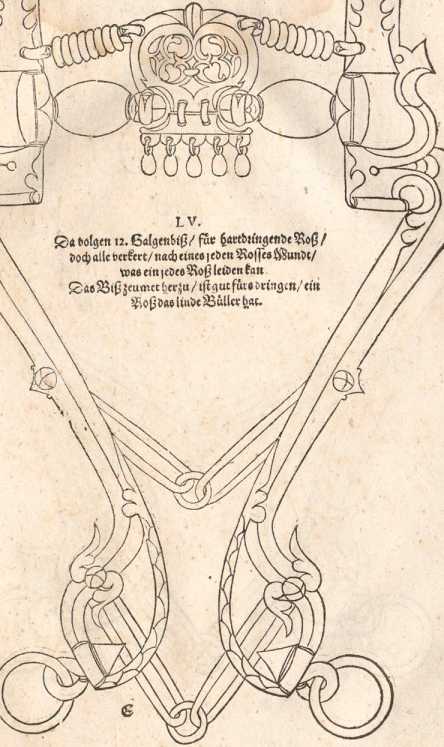 LV.
Da volgen 12. Galgenbiß / für hartdringende Roß /
doch alle verkert / nach eines jeden Rosses Mundt /
was ein jedes Roß leiden kan.
Das Biß zeumet herzu / ist gut fürs dringen / ein
Roß das linde Büller hat.
C